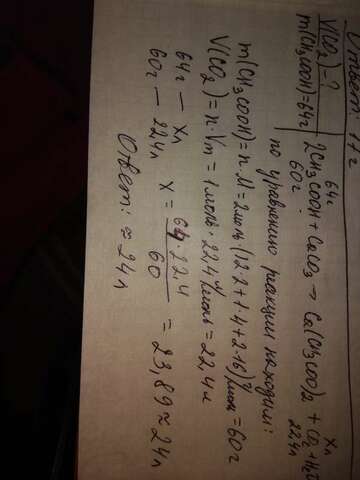 Ответ: 17 г
V(CO2) - ?
m(CH3COOH) = 64г
64г Xл
2CH3COOH + CaCO3 → Ca(CH3COO)2 + CO2 + H2O
60г 22,4л
по уравнению реакции находим:
m(CH3COOH) = n·M = 2моль·(12·2+1·4+2·16)г/моль = 60г
V(CO2) = n·Vm = 1моль·22,4 л/моль = 22,4л
64г — Xл
60г — 22,4л
X = 64·22,4 / 60 = 23,89 ≈ 24л
Ответ: ≈ 24л